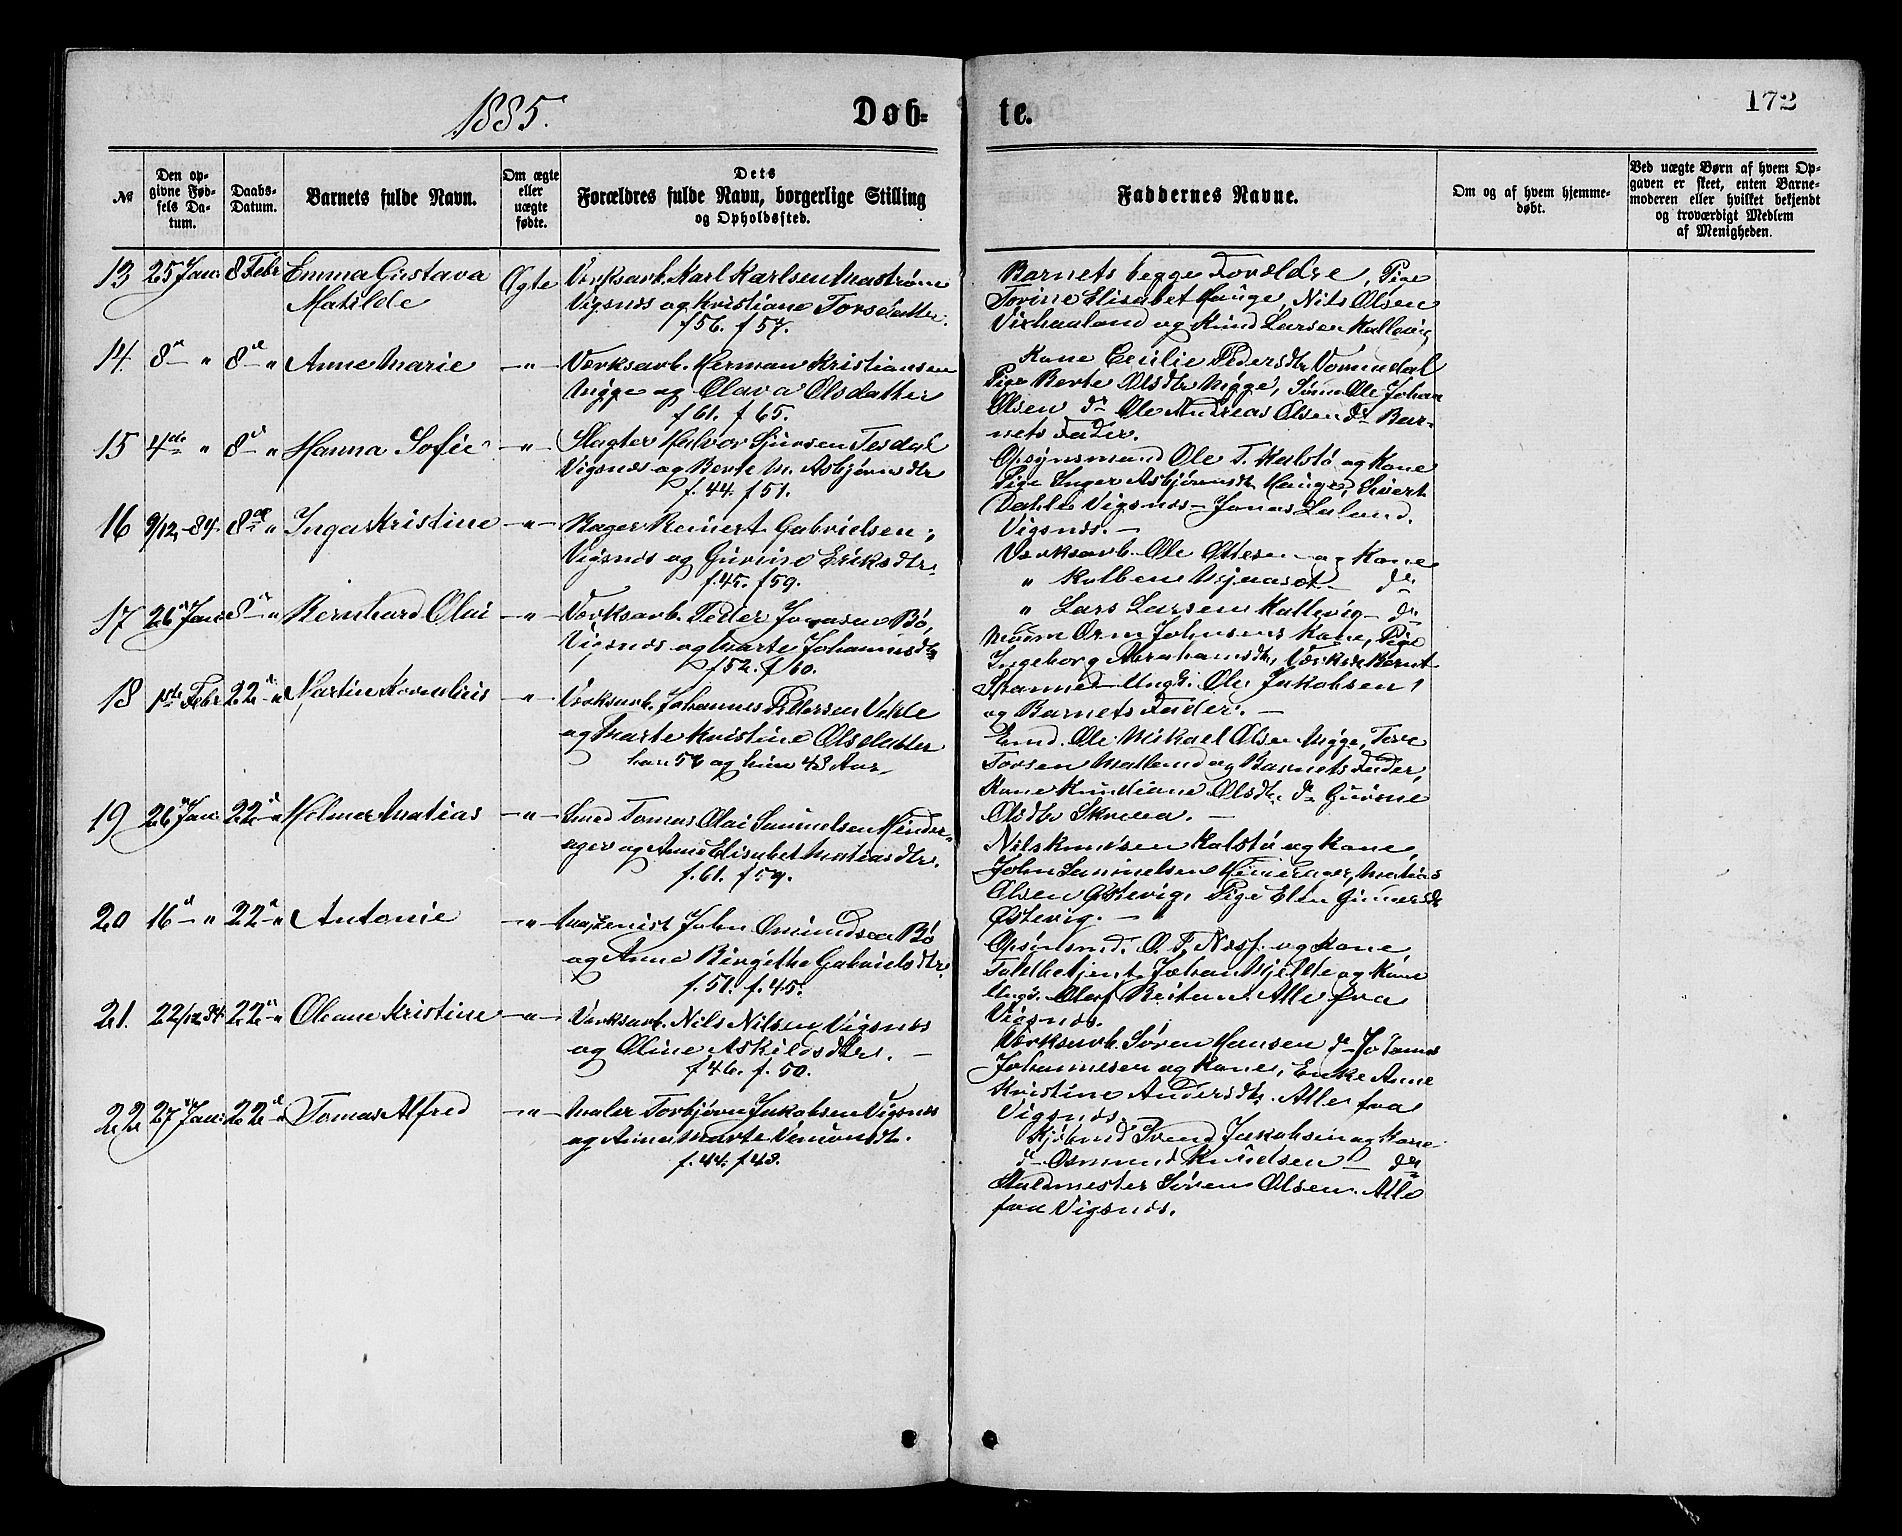 1885.
Døb-
te.
172
№
Den op-
givne Fød-
sels Da-
tum.
Daabs-
Datum.
Barnets fulde Navn.
Om ægte
eller
uægte
fødte.
Dets
Forældres fulde Navn, borgerlige Stilling
og Opholdssted.
Faddernes Navne.
Om og af hvem hjemme-
døbt.
Ved uægte Børn af hvem Op-
gaven er skeet, enten Barne-
moderen eller hvilket bekjendt
og troværdigt Medlem
af Menigheden.
13 25 Jan. 8 Febr Emma Gustava
Matilde
Ægte
Værksarb. Karl Karlsen
Vigsnes og Kristiane Torsdatter.
f 56. f 57.
Barnets begge Forældre, Pige
Torine Elisabet Hauge, Nils Olsen
Vixhaaland og Knud Larsen Kallevig
14. 8de " 8de " Anne Marie -"-
Værksarb. Herman Kristiansen
Mygge og Olava Olsdatter
f 61. f 65.
Kone Cecilie Pedersdtr
Pige Berte Olsdtr Mygge, Ole Johan
Olsen do Ole Andreas Olsen do Bar-
nets Fader.
15 4de " 8de " Hanna Sofie -"-
Slagter Halvor Sjursen Tesdal
Vigsnes og Berte M. Asbjørnsdtr
f. 44. f 51.
Opsynsmand Ole T. Kalstø og Kone
Pige Inger Asbjørnsdtr Hauge, Sivert
Dahle Vigsnes - Jonas Laland.
Vigsnes. -
16 9/12 - 84. 8de " Inga Kristine -"-
Bager Reinert Gabrielsen,
Vigsnes og Gurine Eriksdtr.
f. 45. f 59.
Værksarb. Ole Ottesen og Kone
" Kolben do
" Lars Larsen Kallevig - do
17 26 Jan 8de " Bernhard Olai -"-
Værksarb. Peder Jonasen Bø,
Vigsnes og Marte Johannesdtr
f 52. f 60.
Orm Johnsens Kone, Pige
Ingeborg Abrahamsdtr, Bernt
Ungk. Ole Jakobsen
og Barnets Fader. -
18 1ste Febr 22de " Martin Kornelius -"-
Værksarb. Johannes Pedersen
og Marte Kristine Olsdatter
han 56 og hun 43 Aar.
Ole Mikael Olsen Mygge, Tore
Torsen og Barnets Fader,
Kone Olsdtr. do Gurine
Olsdtr Skreea. -
19 26 Jan. 22de " Holmer Matias -"-
Smed Tomas Olai Samuelsen Hinder-
ager og Anne Elisabet Matiasdtr.
f. 61. f 59.
Nils Knudsen Kalstø og Kone,
John Samuelsen Hinderager, Matias
Olsen Østevig, Pige Elen Gunnarsdtr
Østevig. -
20 16de " 22de " Antonie -"-
John Osmundsen Bø
og Anne Birgithe Gabrielsdtr.
f. 51. f. 45.
Opsynsmd. O. T. Næss og Kone,
Toldbetjent Johan Mjelde og Kone
Ungk. Oluf Reitan. Alle fra
Vigsnes.
21. 22/12 84. 22de " Oleane Kristine -"-
Værksarb. Nils Nilsen Vigsnes
og Oline Askildsdtr. -
f 46. f. 50.
Værksarb. Søren Hansen do
Johannesen og Kone, Enke Anne
Kristine Andersdtr. Alle fra
Vigsnes.
22 27 Jan. 22de " Tomas Alfred -"-
Maler Torbjørn Jakobsen Vigsnes
og Anne Marte Simonsdt.
f. 44. f 43.
Kjøbmd Svend Jakobsen og Kone
do Osmund Knudsen do
Staldmester Søren Olsen. Alle
fra Vigsnes.